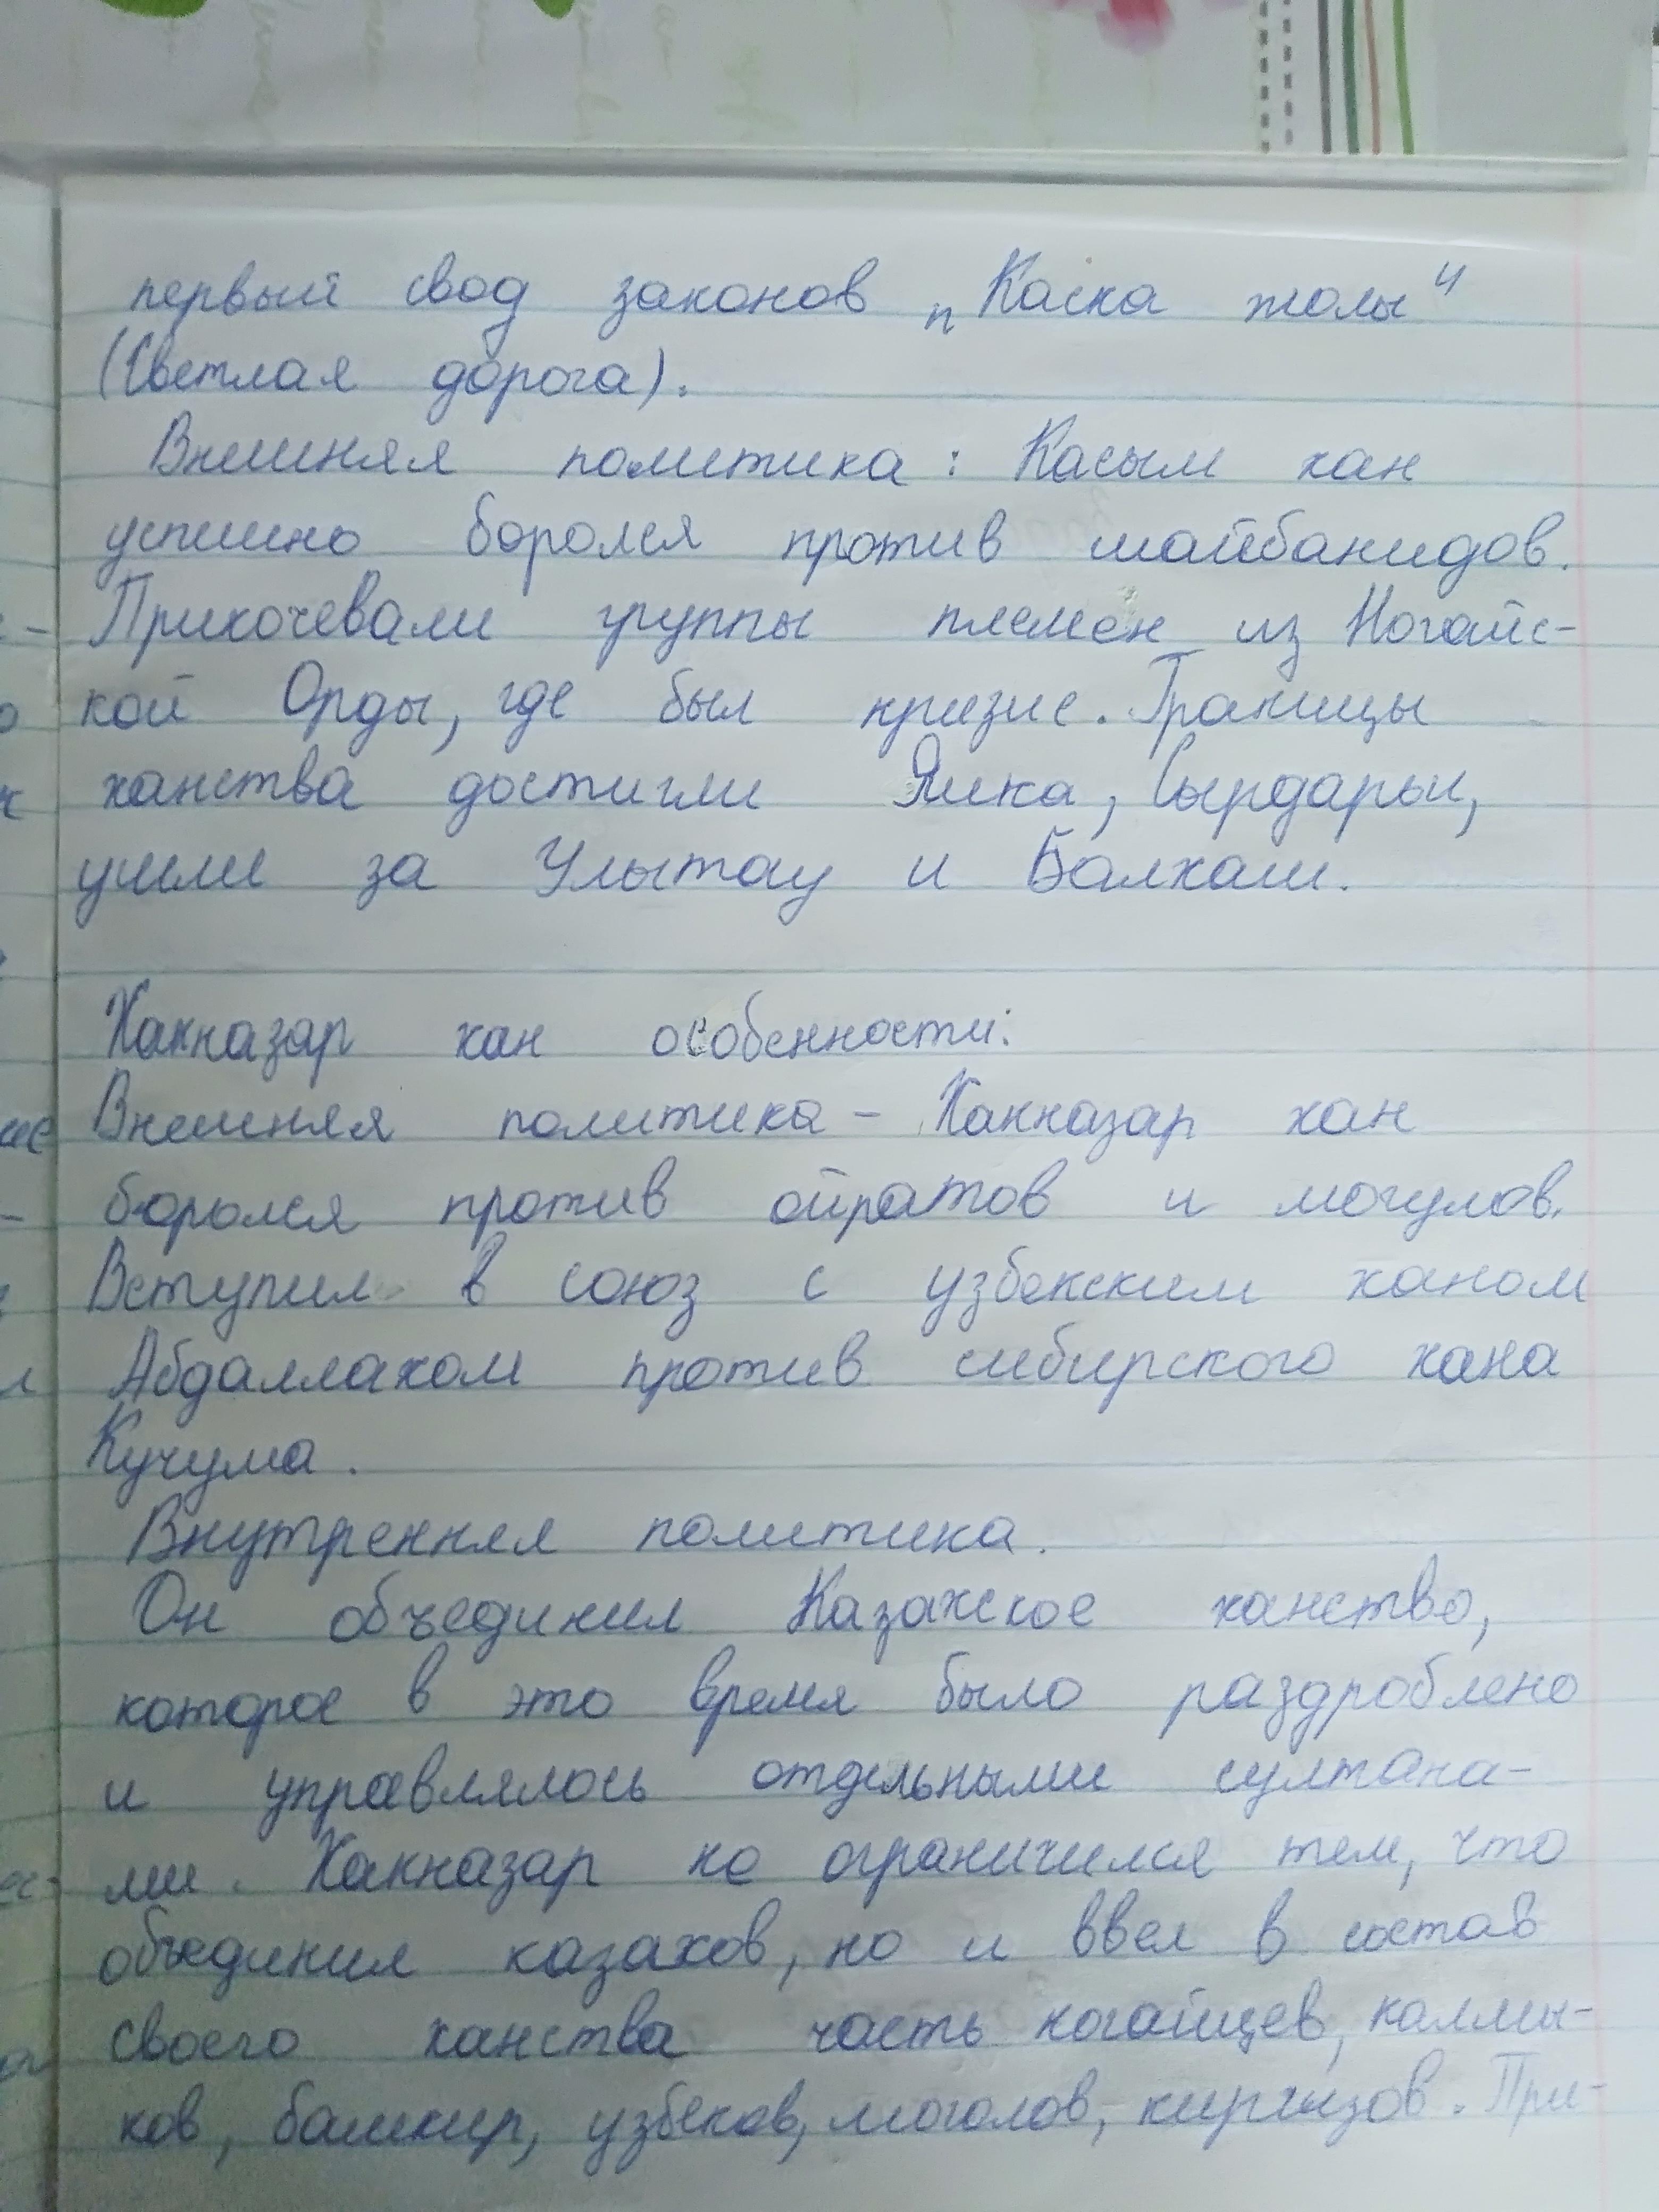 первый свод законов „Каска жолы"
(Светлая дорога).
Внешняя политика: Касым хан
успешно боролся против шайбанидов.
Прикочевали группы племен из Ногайс-
кой Орды, где был кризис. Границы
ханства достигли Яика, Сырдарьи,
ушли за Улытау и Балхаш.
Хакназар хан особенности:
Внешняя политика - Хакназар хан
боролся против ойратов и могулов.
Вступил в союз с узбекским ханом
Абдаллахом против сибирского хана
Кучума.
Внутренняя политика.
Он объединил Казахское ханство,
которое в это время было раздроблено
и управлялось отдельными султана-
ми. Хакназар не ограничился тем, что
объединил казахов, но и ввел в состав
своего ханства часть ногайцев, калмы-
ков, башкир, узбеков, моголов, киргизов. При-